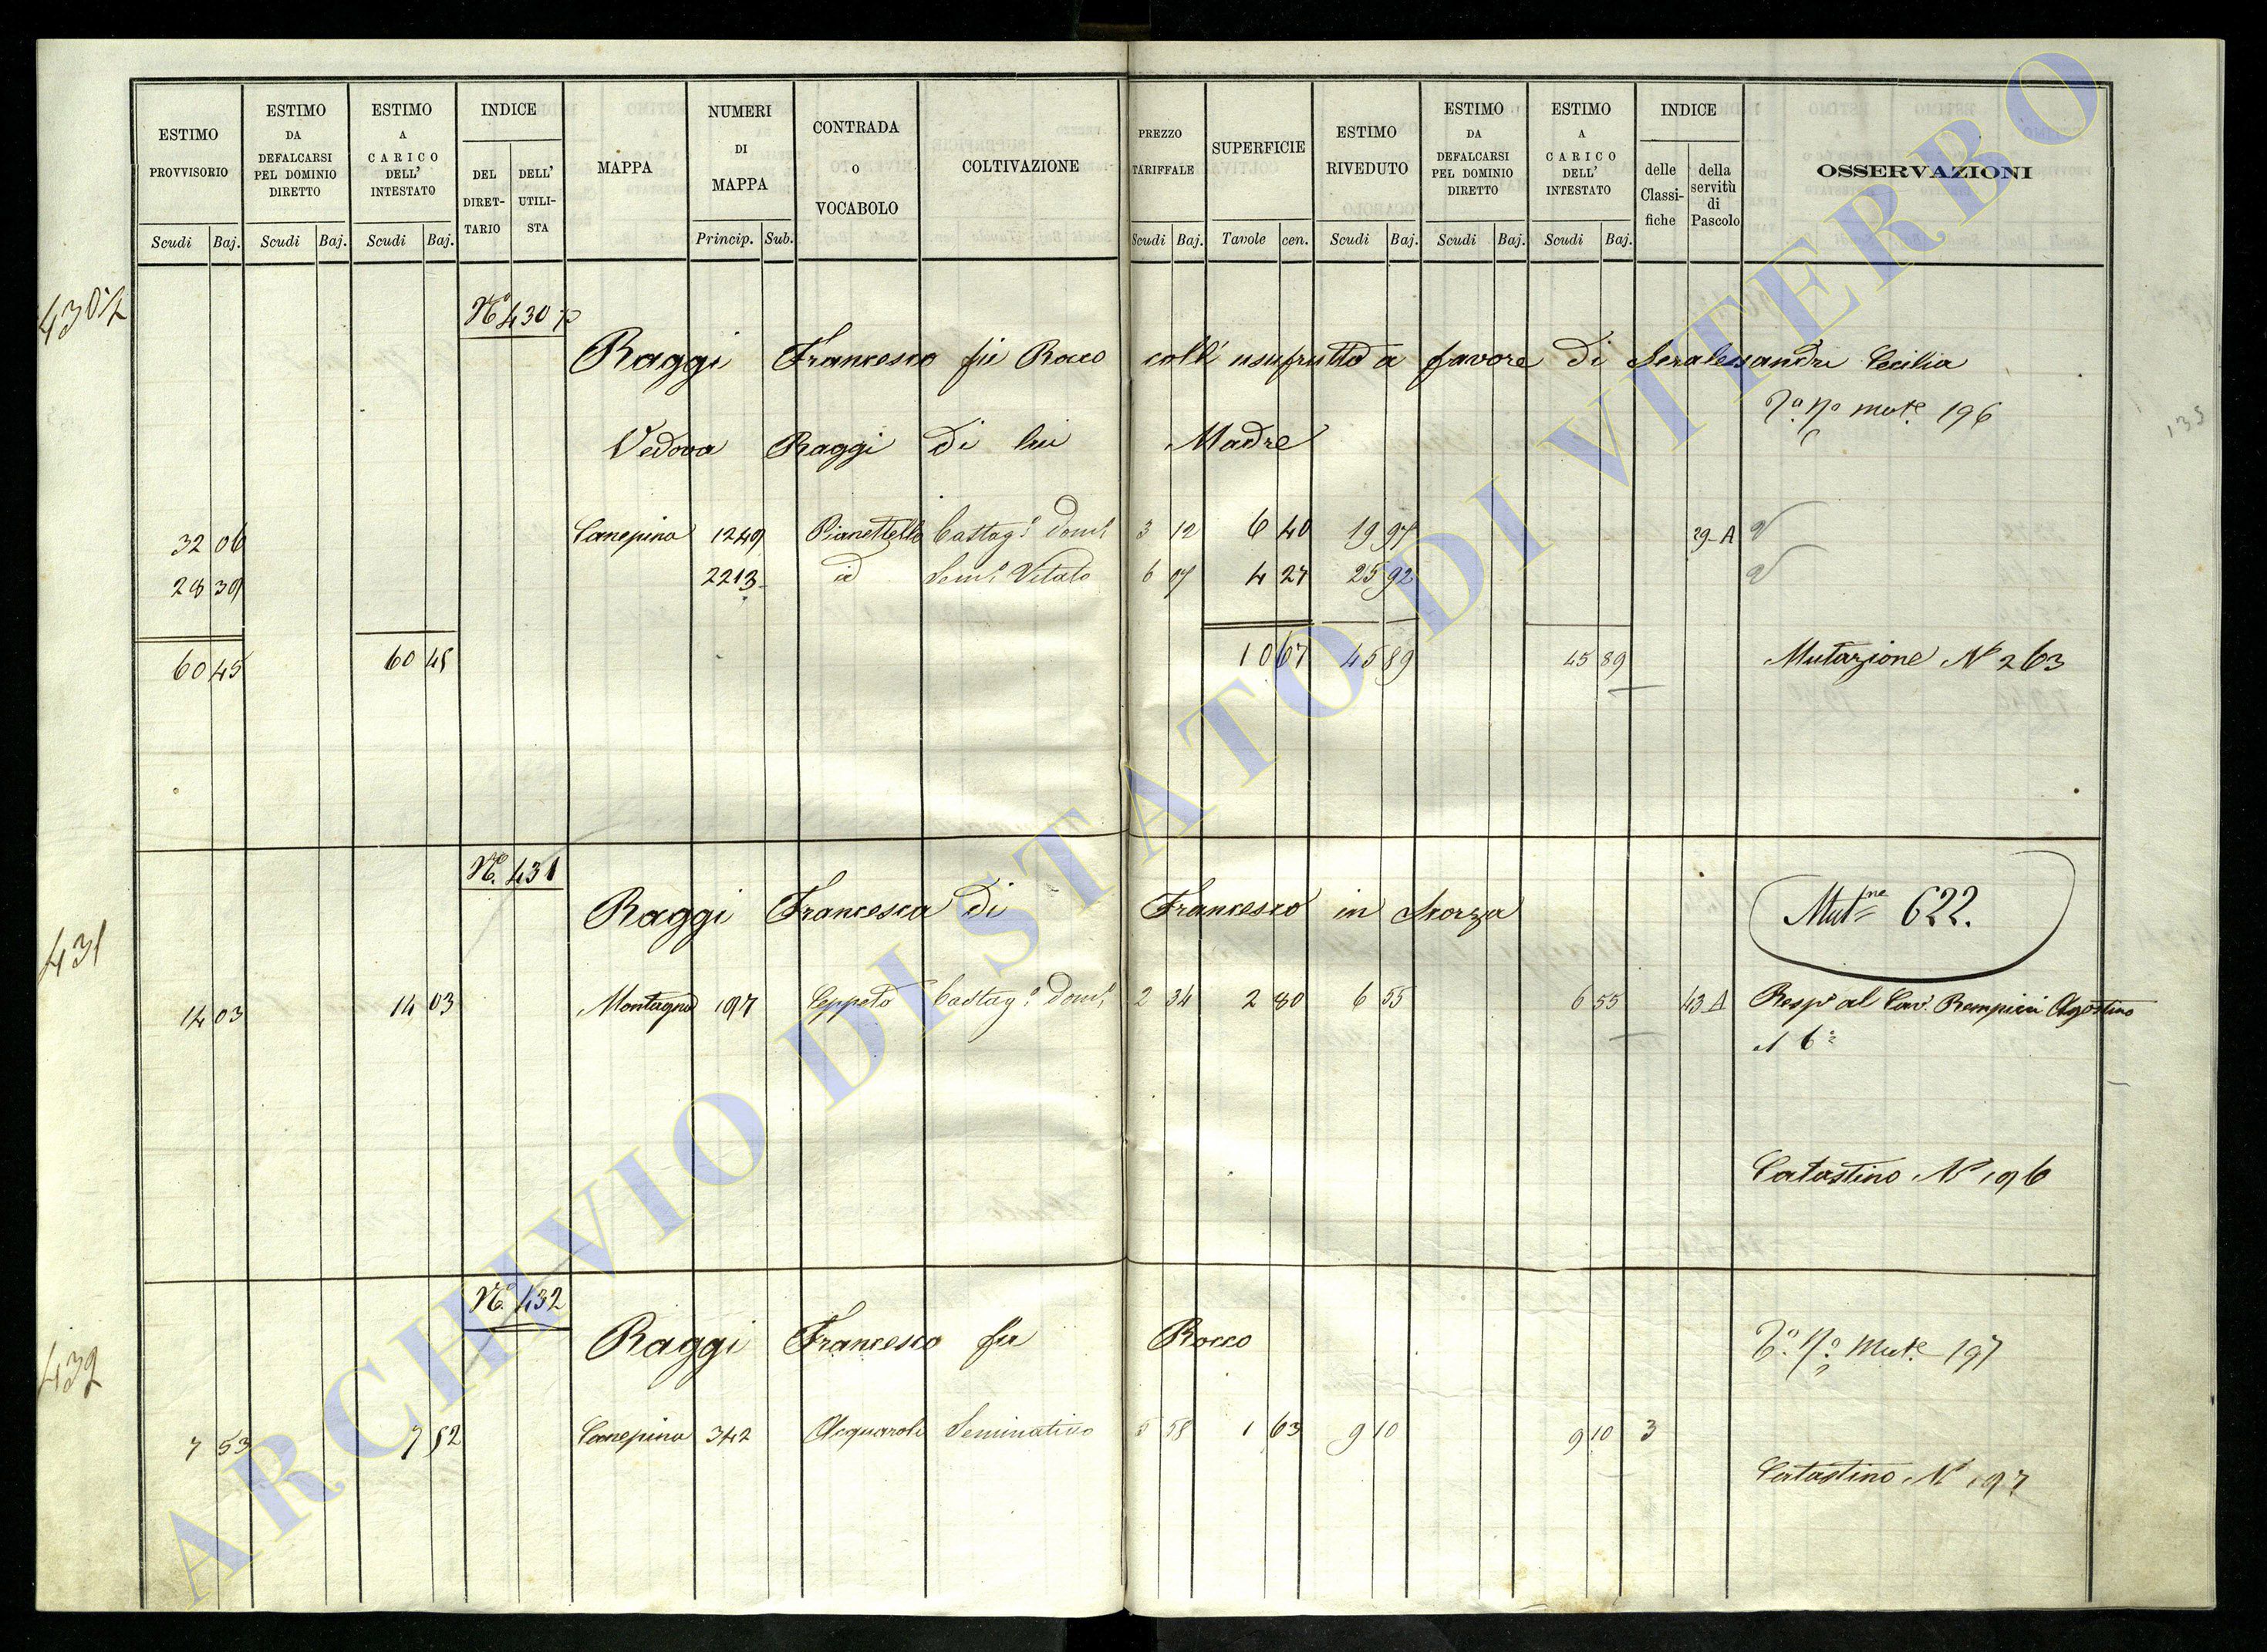 ESTIMO PROVVISORIO
Scudi Baj.
ESTIMO DA DEFALCARSI PEL DOMINIO DIRETTO
Scudi Baj.
ESTIMO A CARICO DELL' INTESTATO
Scudi Baj.
INDICE
DEL DIRET- TARIO
DELL' UTILI- STA
MAPPA
NUMERI DI MAPPA
Princip. Sub.
CONTRADA o VOCABOLO
COLTIVAZIONE
PREZZO TARIFFALE
Scudi Baj.
SUPERFICIE
Tavole cen.
ESTIMO RIVEDUTO
Scudi Baj.
ESTIMO DA DEFALCARSI PEL DOMINIO DIRETTO
Scudi Baj.
ESTIMO A CARICO DELL' INTESTATO
Scudi Baj.
INDICE
delle Classi- fiche
della servitù di Pascolo
OSSERVAZIONI
No 430
Raggi Francesco fù Rocco coll' usufrutto a favore di Seralessandri Cecilia
mute 196
Vedova Raggi di lui Madre
32 06 Canepina 1249 Pianettello Castago domo 3 12 6 40 19 97 29-A
28 39 2213 id Semo Vitato 6 07 4 27 25 92
60 45 60 45 10 67 45 89 45 89 Mutazione No 263
No. 431
431
Raggi Francesca di Francesco in Scorza
Mutne 622.
14 03 14 03 Montagna 197 Ceppeto Castago domo 2 34 2 80 6 55 6 55 43 A Respo al Cav. Rempicci Agostino
N 6
Catastino No 196
No. 432
432
Raggi Francesco fu Rocco
Mute 197
7 53 7 52 Canepina 342 Acquarole Seminativo 5 58 1 63 9 10 9 10 3
Catastino No 197
135
ARCHIVIO DI STATO DI VITERBO